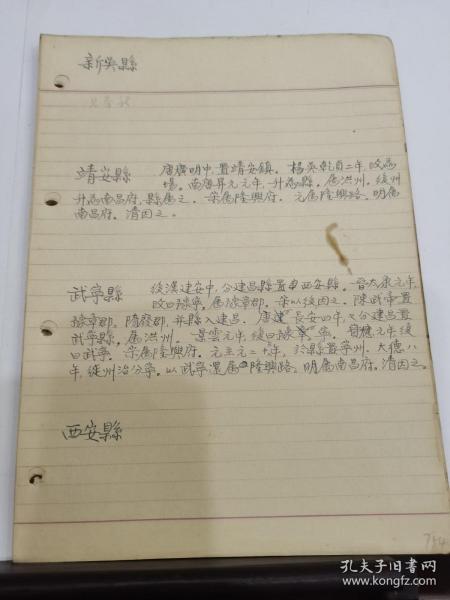 新吳縣
靖安縣 唐廣明中,置靖安鎮。楊吳乾貞二年,改為
場。南唐昇元元年,升為縣。屬洪州。後州
升為南昌府,縣屬之。宋屬隆興府。元屬隆興路。明屬
南昌府。清因之。
武寧縣 後漢建安中,分建昌縣置西安縣。晉太康元年,
改曰豫寧。屬豫章郡。宋以後因之。陳武帝置
豫章郡。隋廢郡,并縣入建昌。唐長安四年,又分建昌置
武寧縣,屬洪州。景雲元年,復曰豫寧。寶應元年復
曰武寧。宋屬隆興府。元至元二十年,於縣置寧州。大德八
年,徙州治分寧。以武寧還屬隆興路。明屬南昌府。清因之。
西安縣
754
孔夫子旧书网
www.kongfz.com